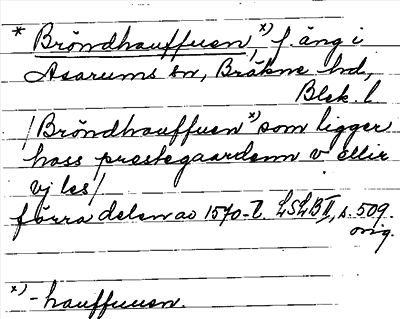 * Bröndhauffuen *), f. äng i
Asarums sn, Bräkne hd,
Blek. l
/Bröndhauffuen *) som ligger
hass prestegaardenn v eller
vj les/
förra delen av 1570-t. LSLB II, s. 509.
orig.
*) - hauffuuen.